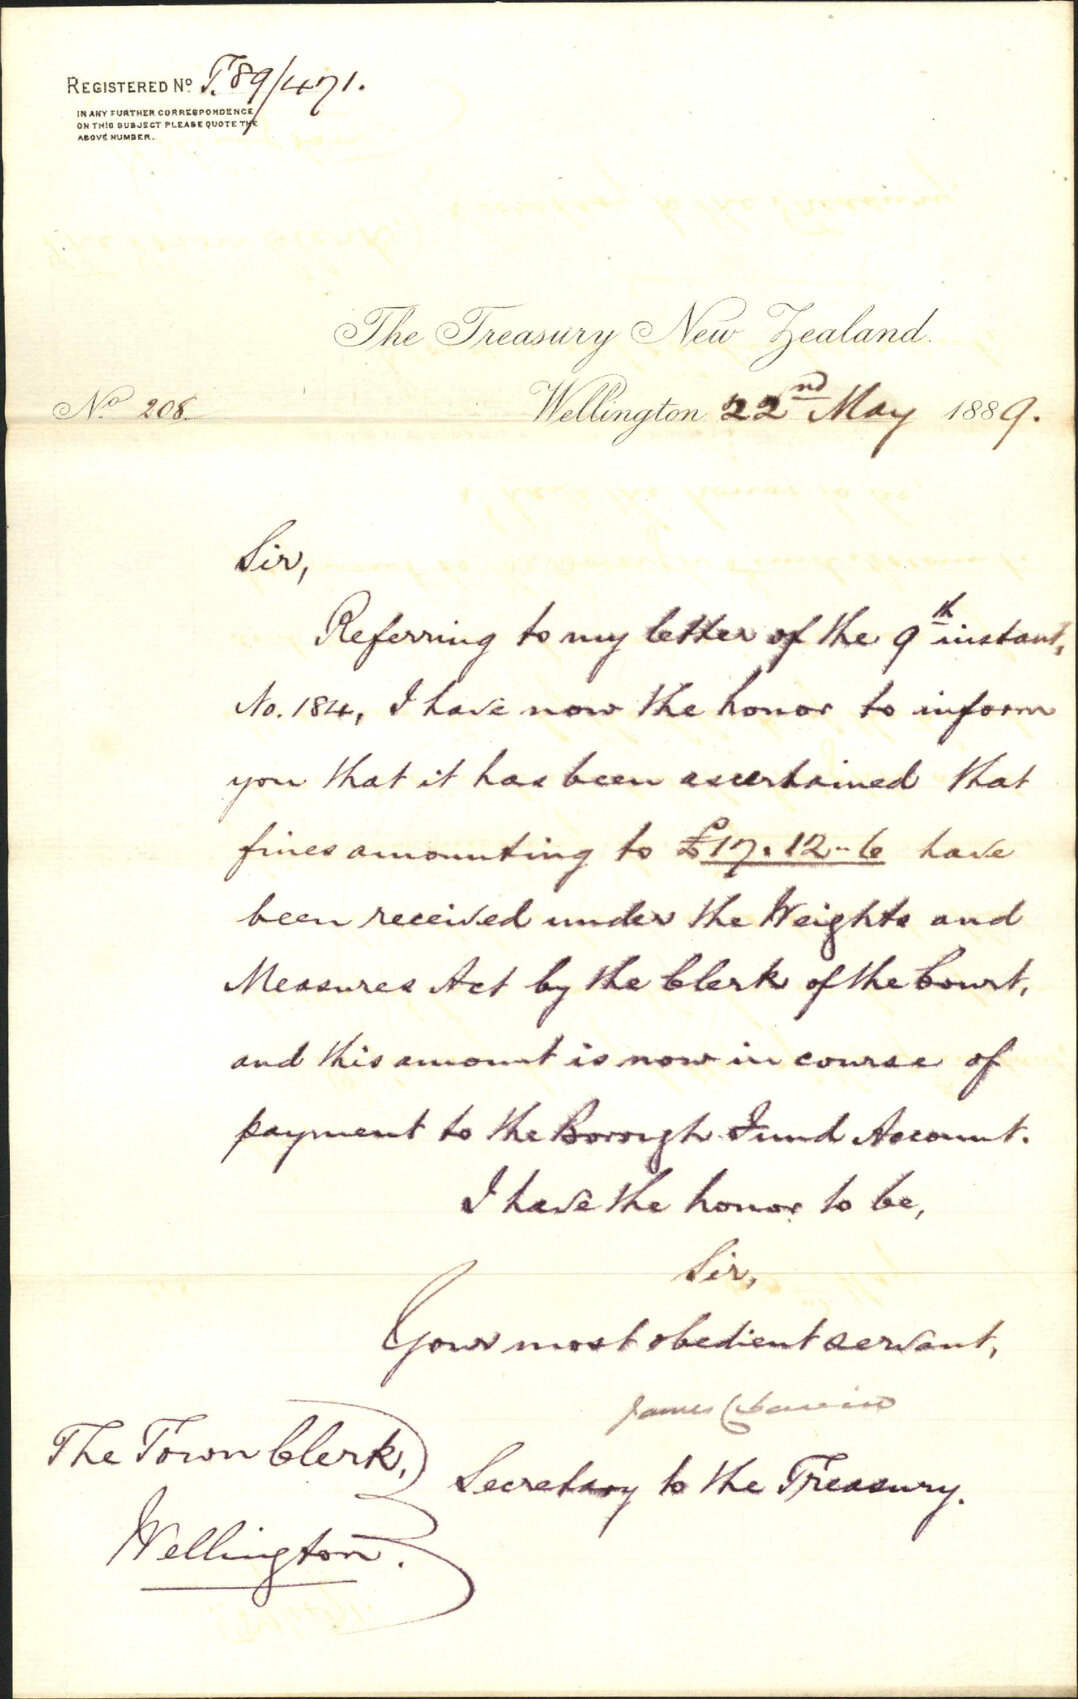 REGISTERED No T.89/471.
IN ANY FURTHER CORRESPONDENCE
ON THIS SUBJECT PLEASE QUOTE THE
ABOVE NUMBER.
The Treasury New Zealand.
No. 208
Wellington 22nd May 1889.
Sir,
Referring to my letter of the 9th instant,
No. 184, I have now the honor to inform
you that it has been ascertained that
fines amounting to £17.12.6 have
been received under the Weights and
Measures Act by the Clerk of the Court,
and this amount is now in course of
payment to the Borough Fund Account.
I have the honor to be,
Sir,
Your most obedient servant,
James
Secretary to the Treasury.
The Town Clerk,
Wellington.